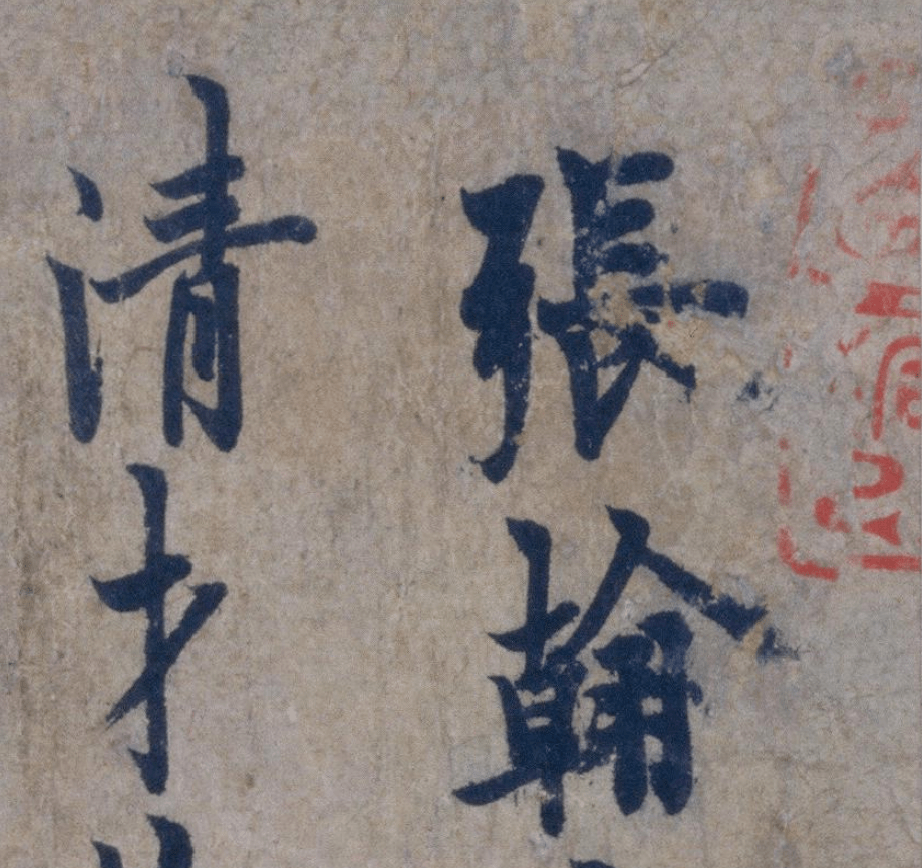 張翰
清才